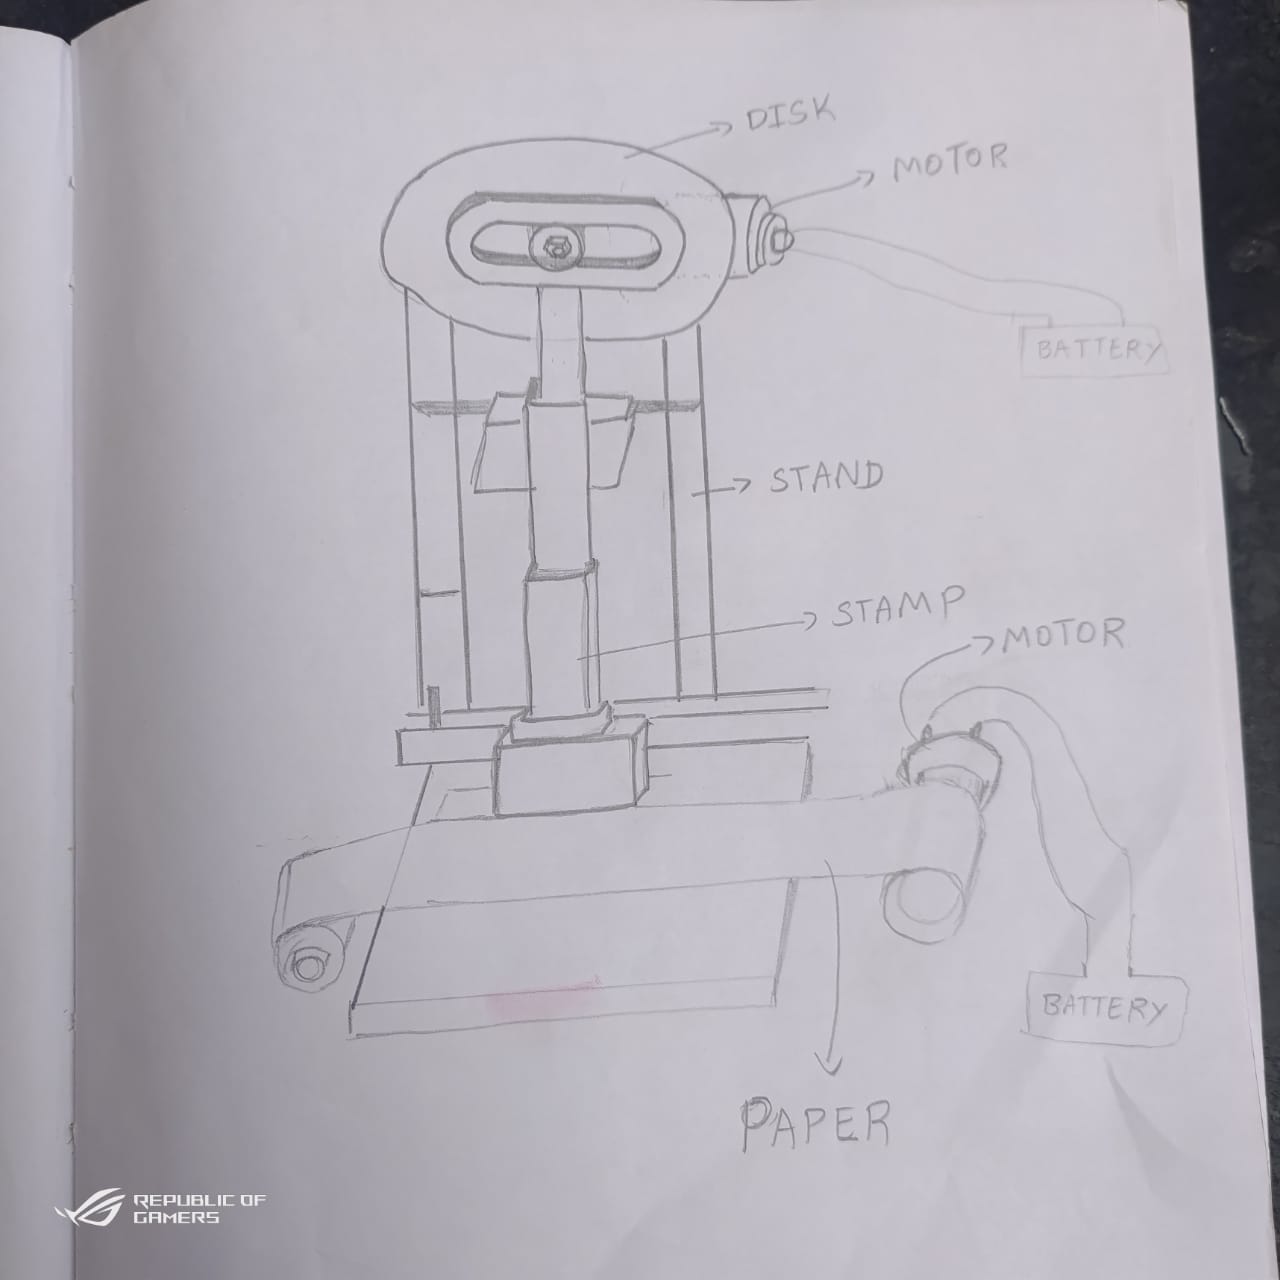 DISK
MOTOR
BATTERY
STAND
STAMP
MOTOR
BATTERY
PAPER
REPUBLIC OF
GAMERS